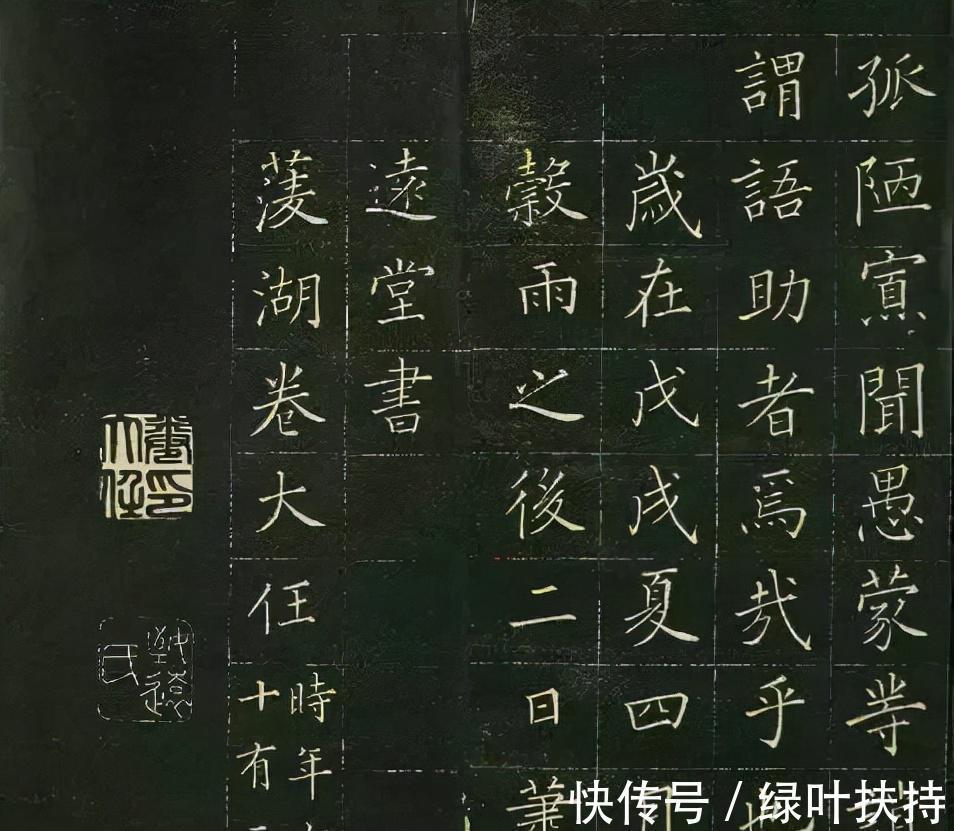 孤陋寡聞愚蒙等
謂語助者焉哉乎
歲在戊戌夏四
穀雨之後二日
遠堂書
蔆湖卷大任時年十有
快传号 / 绿叶扶持